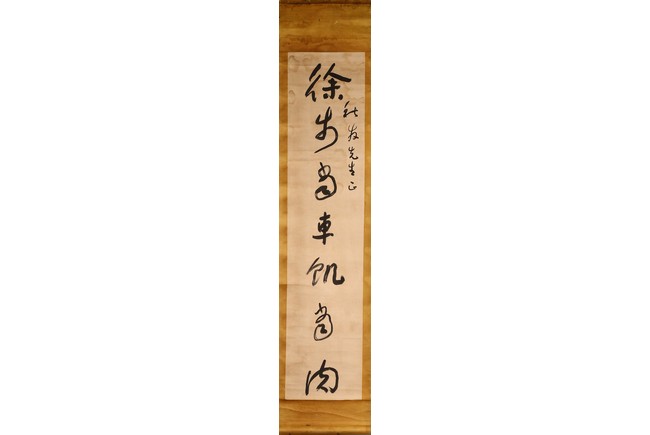 徐步當車飢當肉
秋友先生正